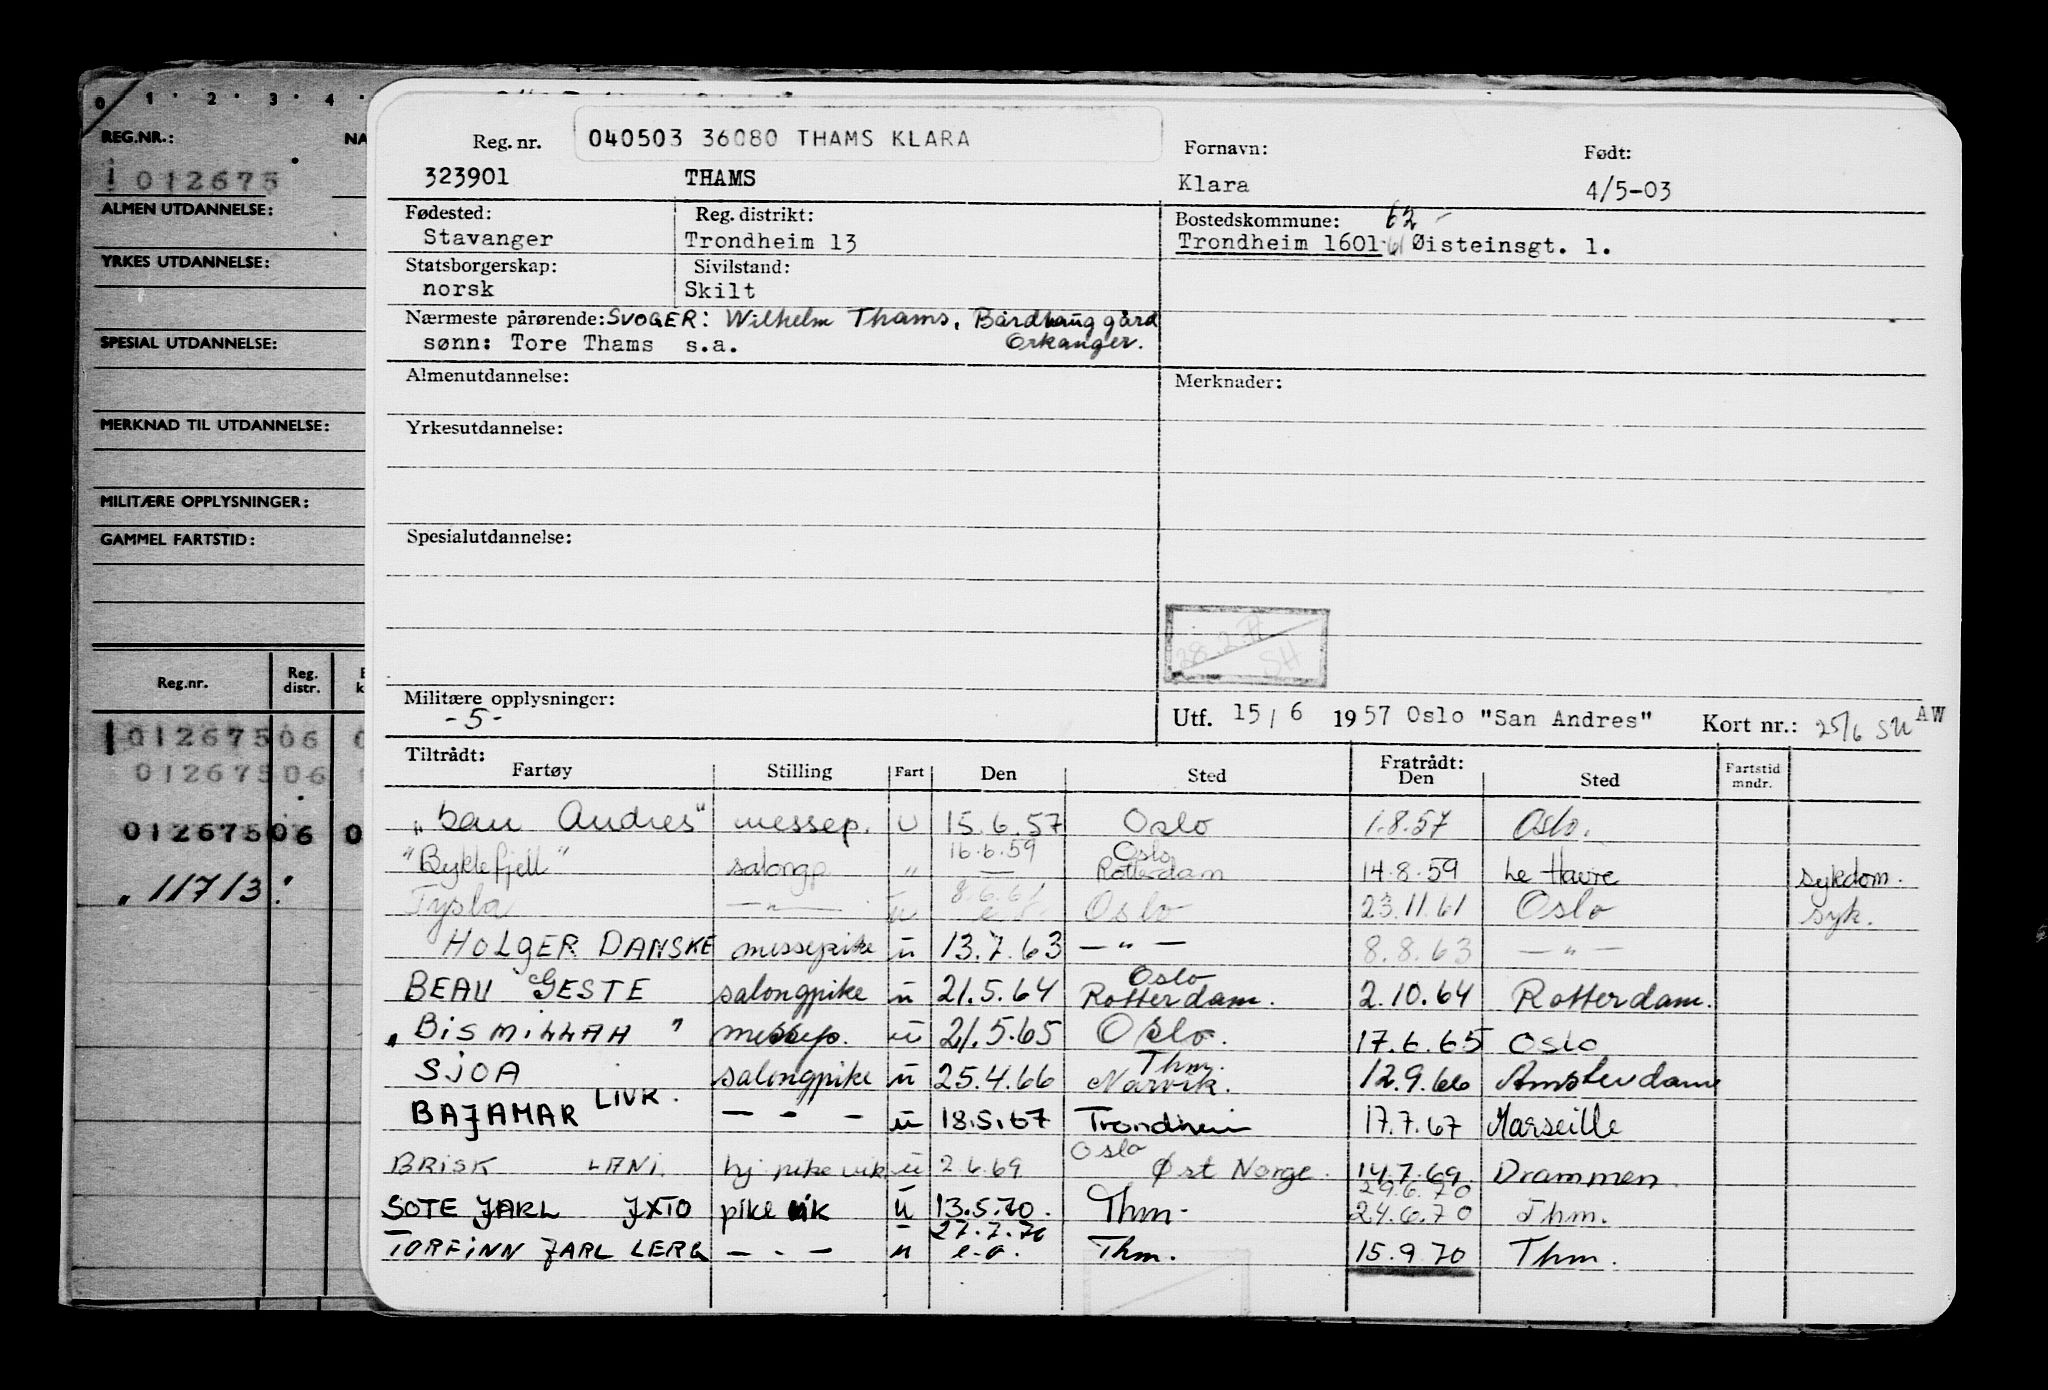 0 1 2 3 4
REG.NR.: NA
012675
ALMEN UTDANNELSE:
YRKES UTDANNELSE:
SPESIAL UTDANNELSE:
MERKNAD TIL UTDANNELSE:
MILITÆRE OPPLYSNINGER:
GAMMEL FARTSTID:
Reg.nr. Reg. distr.
01267506 0
01267506
01267506 0
11713
Reg. nr. 040503 36080 THAMS KLARA Fornavn: Født:
323901 THAMS Klara 4/5-03
Fødested: Reg. distrikt: Bostedskommune: 62-
Stavanger Trondheim 13 Trondheim 1601-61 Øisteinsgt. 1.
Statsborgerskap: Sivilstand:
norsk Skilt
Nærmeste pårørende: SVOGER: Wilhelm Thams, Bårdhaug gård
sønn: Tore Thams s.a. Orkanger.
Almenutdannelse: Merknader:
Yrkesutdannelse:
Spesialutdannelse:
28.2.71
SH
Militære opplysninger:
-5-
Utf. 15/6 1957 Oslo "San Andres" Kort nr.: 25/6 SH AW
Tiltrådt: Fartøy Stilling Fart Den Sted Fratrådt: Den Sted Fartstid mndr.
"San Andres" messep. u 15.6.57 Oslo 1.8.57 Oslo.
"Byklefjell" salongp. " 16.6.59 — Oslo Rotterdam 14.8.59 Le Havre sykdom.
Tysla —"— u 8.6.61 e.o. Oslo 23.11.61 Oslo syk.
HOLGER DANSKE messepike u 13.7.63 —"— 8.8.63 —"—
BEAU GESTE salongpike u 21.5.64 Oslo Rotterdam. 2.10.64 Rotterdam.
"BISMILLAH" messep. u 21.5.65 Oslo. 17.6.65 Oslo
SJOA salongpike u 25.4.66 Thm. Narvik. 12.9.66 Amsterdam
BAJAMAR LIVK. — - — u 18.5.67 Trondheim 17.7.67 Marseille
BRISK LANI. hj. pike vik. u 2.6.69 Oslo Øst Norge. 14.7.69 Drammen.
29.6.70
SOTE JARL JXTO pike vik u 13.5.70. Thm. 24.6.70 Thm.
27.7.70
TORFINN JARL LERG — . — u e.o. Thm. 15.9.70 Thm.